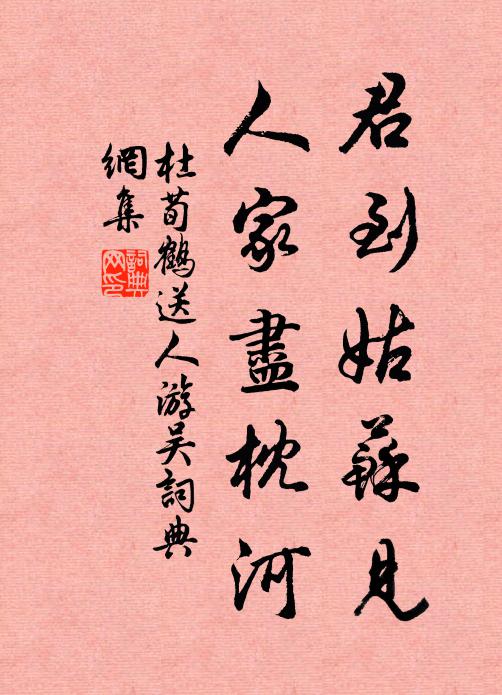 君到姑蘇見
人家盡枕河
杜荀鶴送人游吴詞典
網集
詞典
网印